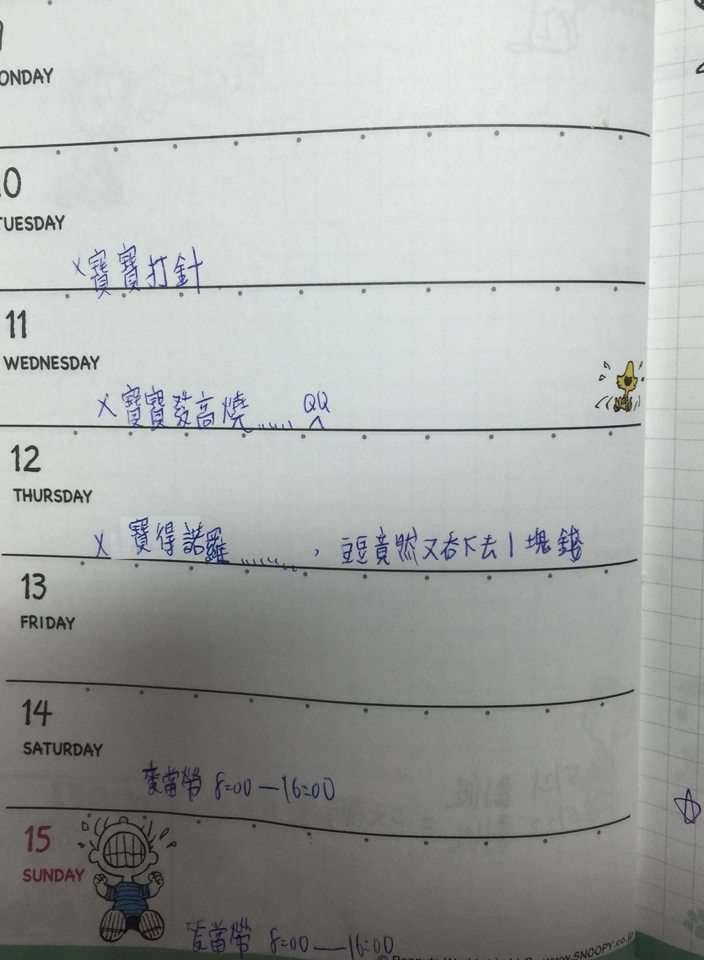 ONDAY
TUESDAY
x寶寶打針
11
WEDNESDAY
x 寶寶發高燒...... QQ
12
THURSDAY
x 寶得諾羅......., 豆豆竟然又吞下去1塊錢
13
FRIDAY
14
SATURDAY
麥當勞 8:00 — 16:00
15
SUNDAY
麥當勞 8:00 — 16:00
www.SNOOPY.co.jp